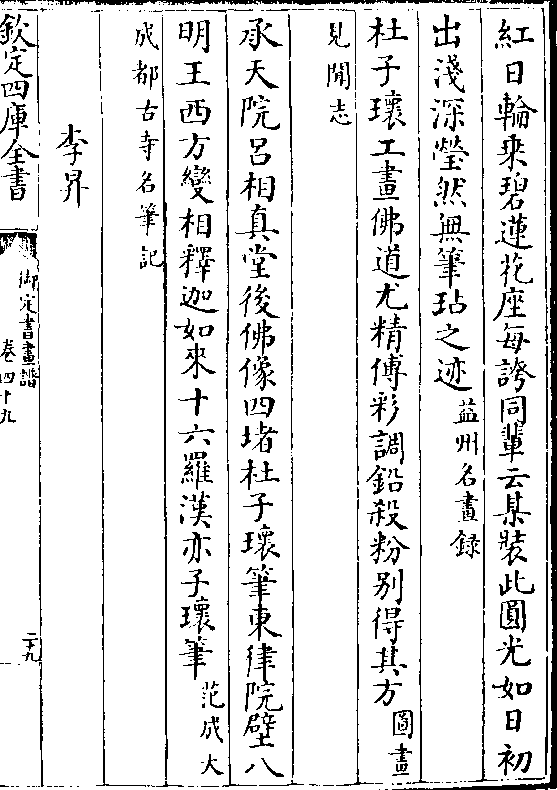 紅日輪乗碧蓮花座每誇同輩云某裝此圓光如日初
出淺深瑩然無筆玷之迹益州名畫録
杜子瓌工畫佛道尤精傅彩調鉛殺粉别得其方圖畫
見聞志
承天院吕相真堂後佛像四堵杜子瓌筆東律院壁八
明王西方變相釋迦如來十六羅漢亦子瓌筆范成大
成都古寺名筆記
李昇
欽定四庫全書
御定書畫譜
卷四十九
二十九